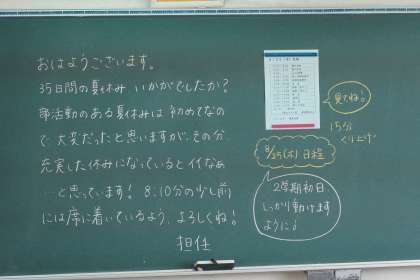 おはようございます。
35日間の夏休みいかがでしたか?
部活動のある夏休みは初めてなの
で大変だったと思いますが、その分
充実した休みになっているとイイなぁ
…と思っています! 8:10分の少し前
には席に着いているよう、よろしくね!
担任
見てね!
15分
くり上げ
8/25(木)日程
2学期初日
しっかり動けます
ように♪